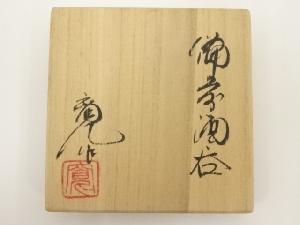 備前酒呑
寛作
寛